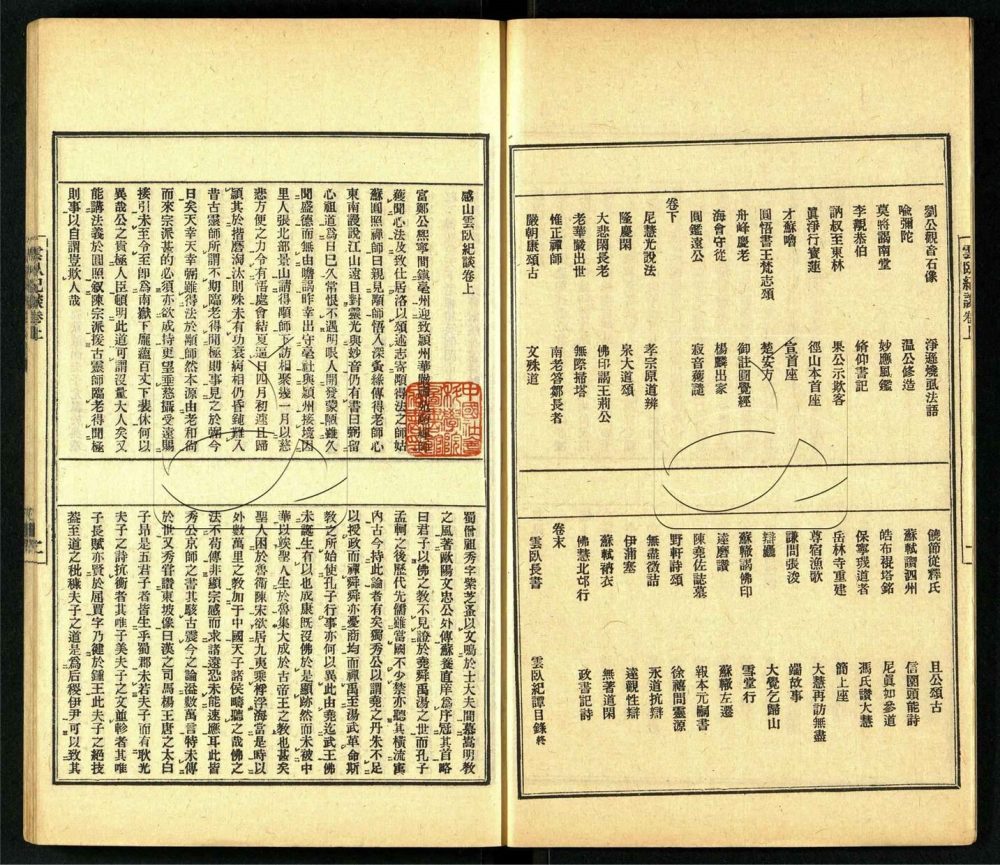 雲臥紀談卷上
劉公觀音石像
淨遜嫩虱法語
喩彌陀
温公修造
莫將謁南堂
妙應風鑑
李觀泰伯
脩仰書記
訥叔至東林
杲公示欺客
眞淨行實蓮
徑山本首座
才蘇嚕
宣首座
圓悟書王梵志頌
楚安方
舟峰慶老
御註圓覺經
海會守從
楊麟出家
圓鑑遠公
寂音蘱讉
卷下
尼慧光說法
孝宗原道辨
隆慶閑
泉大道頌
大悲閑長老
佛印謁王荆公
老華嚴出世
無際掊塔
惟正禪師
南老答鄒長者
嚴朝康頌古
文殊道
饒節從釋氏
且公頌古
蘇軾謂泗州
信園頭能詩
皓布裩塔銘
尼眞如參道
保寧璣道者
馮氏讚大慧
岳林寺重建
簡上座
尊宿漁歌
大慧再訪無盡
謙問張浚
端故事
辯讖
大覺乞歸山
蘇轍謁佛印
雪堂行
達磨讚
蘇轍左遷
陳堯佐誌墓
報本元嗣書
野軒詩頌
徐禧問靈源
無盡徵詰
永道抗辯
伊蒲塞
遠觀性辯
蘇軾衲衣
無著道閑
佛慧北邙行
政書記詩
卷末
雲臥長書
雲臥紀譚目錄終
感山雲臥紀談卷上
富鄭公熙寧間鎭亳州迎致潁州華嚴
蘱聞心法及致仕居洛以頌述志寄顒得法之師姑
蘇圓照禪師曰親見顒師悟入深夤緣傳得老師心
東南謾說江山遠目對靈光與妙音仍有書曰弼留
心祖道爲日巳久常恨不遇明眼人開發蒙陋雖久
聞盛德而無由瞻謁昨幸出守亳社與潁州接境因
里人張比部景山請得顒師下訪相聚幾一月以慈
悲方便之力令有悟處會結夏逼日四月初遽且歸
潁其於揩磨淘汰則殊未有功衰病相仍昏鈍難入
昔古靈師所謂不期臨老得聞極則事見之於弼今
日矣天幸天幸弼雖得法於顒師然本源由老和尙
而來宗派甚的必須亦欲成持更望垂慈攝受遠賜
接引未至令至卽爲南嶽下龐蘊百丈下裴休何以
異哉公之貴極人臣頓明此道可謂沒量大人矣又
能講法義於圓照叙陳宗派援古靈師臨老得聞極
則事以自謂豈欺人哉
蜀僧祖秀字紫芝蚤以文鳴於士大夫間慕嵩明敎
之風著歐陽文忠公外傳蘇養直庠爲序冠其首略
曰君子以佛之敎不見證於堯舜禹湯之世而孔子
孟軻之後歷代先儒雖當國不少禁亦聽其橫流寓
內古今持此論者有矣獨秀公以謂堯之丹朱不足
以授政而禪舜舜亦憂商均而禪禹至湯武革命斯
敎之所始使孔子行事亦何以異此由堯迄武王佛
未誕生有以也成康旣沒佛於是顯跡然而未被中
華以竢聖人生於魯集大成於古帝王之敎也甚矣
聖人困於魯衞陳宋欲居九夷乘桴浮海當是時以
外數萬里之敎加于中國天子諸侯疇聽之哉佛之
法不荀傳非顯宗感而求諸遠恐未能遽應耳此皆
秀公京師之書其駭古震今之論溢數萬言特未傳
於世又秀嘗讚東坡像曰漢之司馬楊王唐之太白
子昂是五君子者皆生乎蜀郡未若夫子而有耿光
夫子之詩抗衡者其唯子美夫子之文並軫者其唯
子長賦亦賢於屈賈字乃健於鍾王此夫子之絕技
蓋至道之秕穅夫子之道是爲后稷伊尹可以致其
雲臥紀談卷上